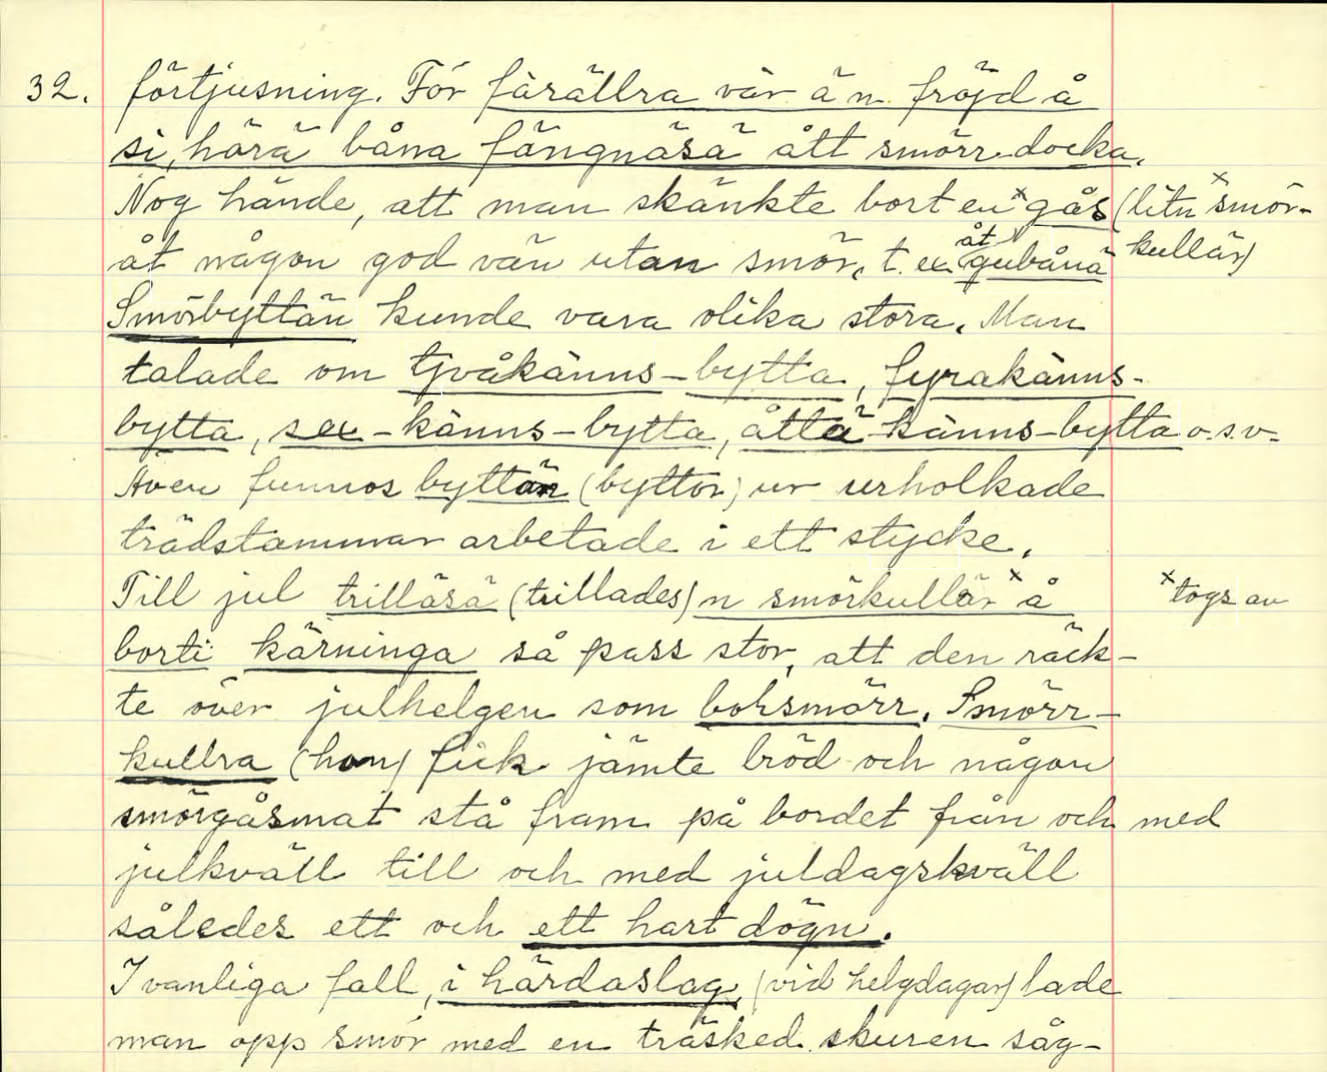 32. förtjusning. För färällra vär ä n fröjd å
si, härä båna fängnäsä ått smörr-docka.
Nog hände, att man skänkte bort en x gås (litn x smör-
åt någon god vän utan smör, t. ex. åt gubånä kullär)
Smörbyttän kunde vara olika stora. Man
talade om tjvåkänns-bytta, fyrakänns-
bytta, sex-känns-bytta, åttä-känns-bytta o.s.v.
Även funnos byttän (byttor) ur urholkade
trädstammar arbetade i ett stycke.
Till jul trilläsä (trillades) n smörkullär x å x togs av
borti kärninga så pass stor, att den räck-
te över julhelgen som bohsmörr. Smörr-
kullra (hon) fick jämte bröd och någon
smörgåsmat stå fram på bordet från och med
julkväll till och med juldagskväll
således ett och ett hart dögn.
I vanliga fall, i härdaslag, (vid helgdagar) lade
man opp smör med en träsked skuren såg-